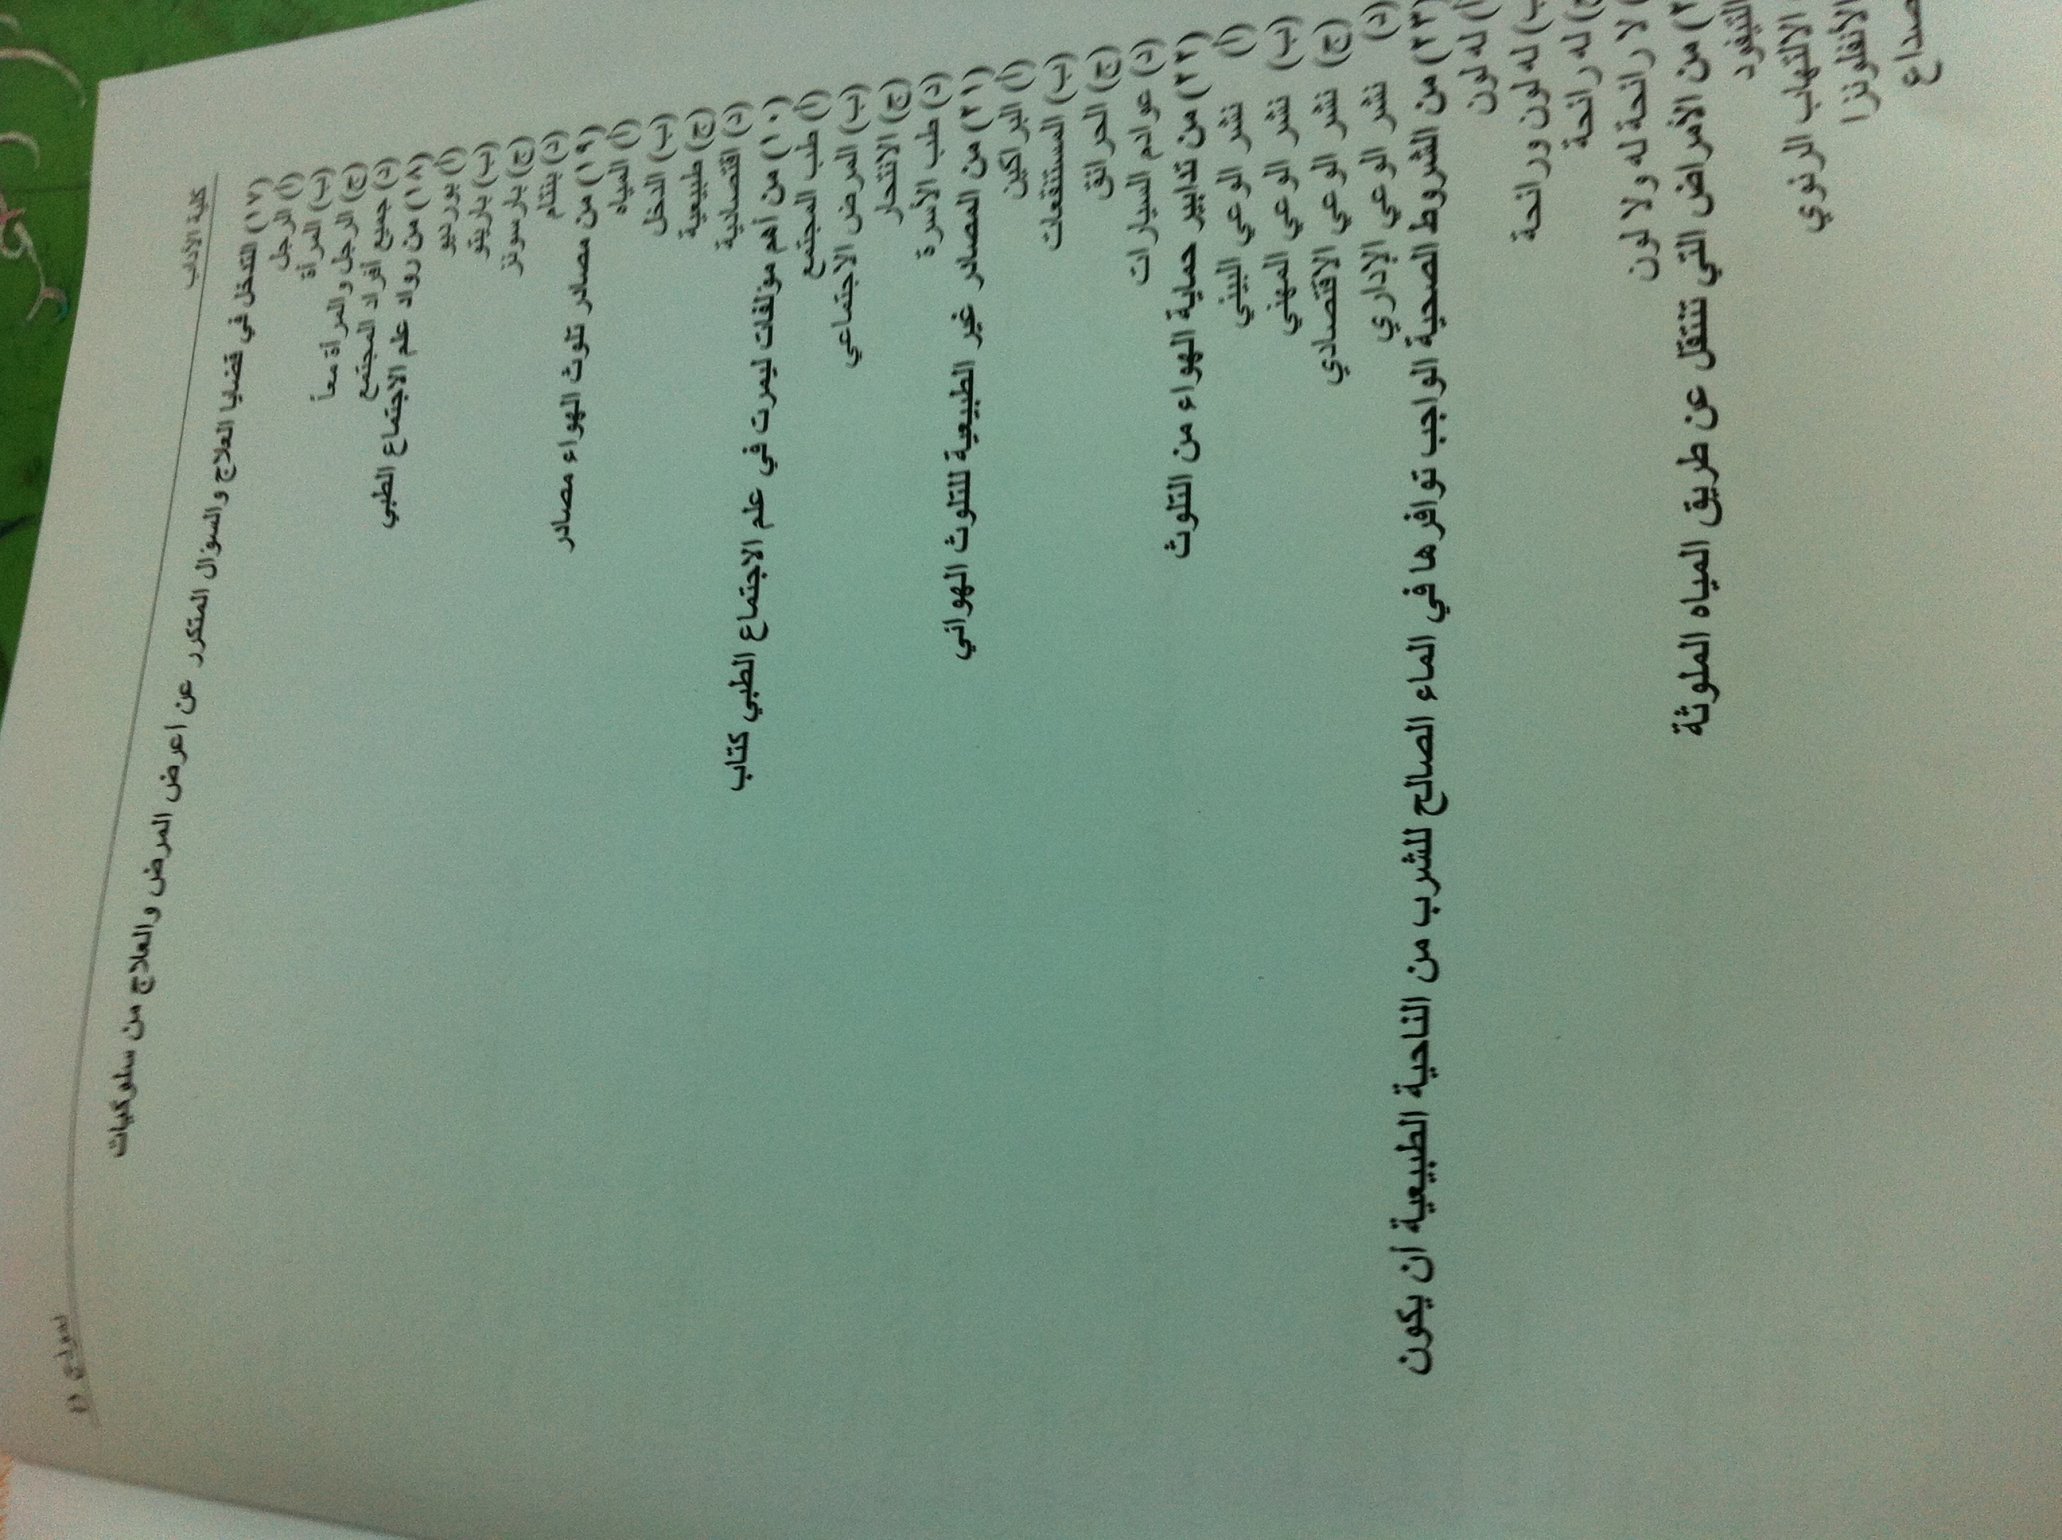 كلية الآداب
(١٧) التدخل في قضايا العلاج والسؤال المتكرر عن اعرض المرض والعلاج من سلوكيات
(أ) الرجل
(ب) المرأة
(ج) الرجل والمرأة معاً
(د) جميع أفراد المجتمع
(١٨) من رواد علم الاجتماع الطبي
(أ) بورديو
(ب) باريتو
(ج) بارسونز
(د) بنتام
(١٩) من مصادر تلوث الهواء مصادر
(أ) المياه
(ب) الدخل
(ج) طبيعية
(د) اقتصادية
(٢٠) من أهم مؤلفات ليمرت في علم الاجتماع الطبي كتاب
(أ) طب المجتمع
(ب) المرض الاجتماعي
(ج) الانتحار
(د) طب الأسرة
(٢١) من المصادر غير الطبيعية للتلوث الهوائي
(أ) البراكين
(ب) المستنقعات
(ج) الحرائق
(د) عوادم السيارات
(٢٢) من تدابير حماية الهواء من التلوث
(أ) نشر الوعي البيئي
(ب) نشر الوعي المهني
(ج) نشر الوعي الاقتصادي
(د) نشر الوعي الإداري
(٢٣) من الشروط الصحية الواجب توافرها في الماء الصالح للشرب من الناحية الطبيعية أن يكون
(أ) له لون
ب) له لون ورائحة
ج) له رائحة
) لا رائحة له ولا لون
من الأمراض التي تنتقل عن طريق المياه الملوثة
التيفود
الالتهاب الرئوي
الأنفلونزا
صداع